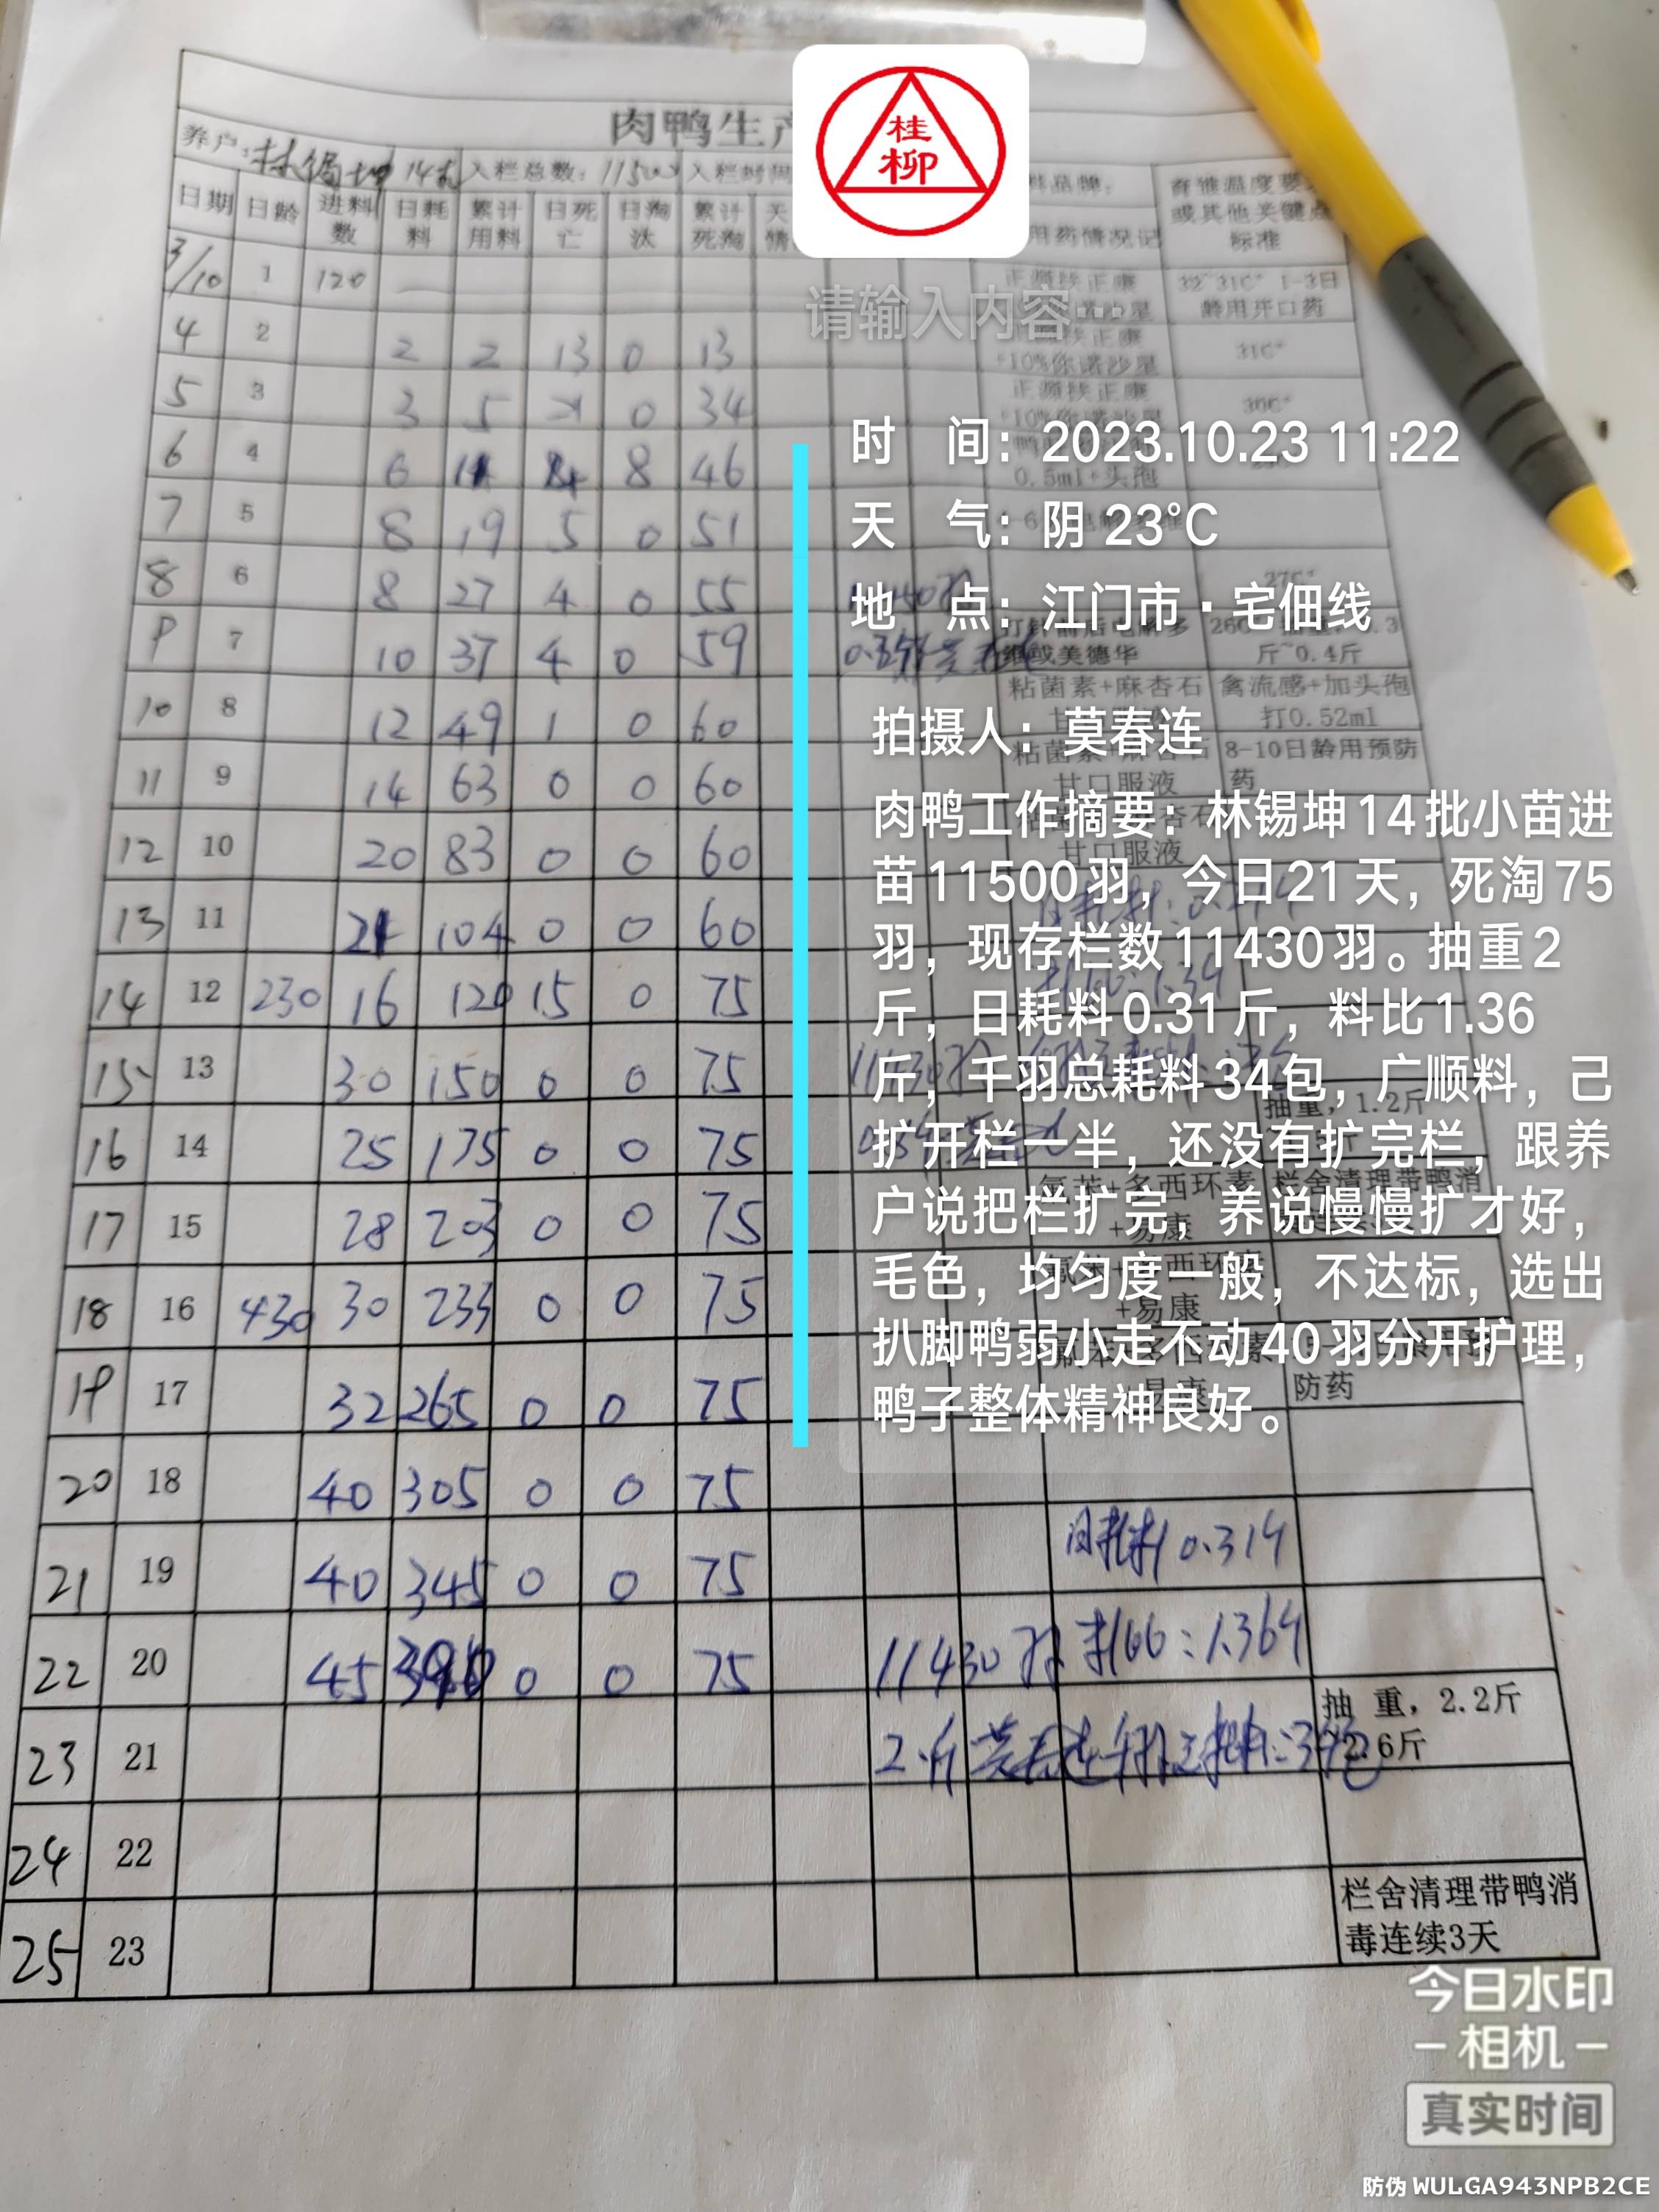 肉鸭生产
桂柳
养户:林锡坤 14批 入栏总数:11500 入栏时间 料品牌:
日期 日龄 进料数 日耗料 累计用料 日死亡 日淘汰 累计死淘 用药情况记 育雏温度要 或其他关键点标准
3/10 1 120 正源扶正康 32~31C° 1-3日龄用开口药
请输入内容…
4 2 2 2 13 0 13 +10%你诺沙星 31C°
5 3 3 5 21 0 34 正源扶正康 30C°
6 4 6 11 4 8 46 0.5ml+头孢
7 5 8 19 5 0 51
8 6 8 27 4 0 55 27C°
9 7 10 37 4 0 59 打针前后电解多维或美德华 斤~0.4斤
10 8 12 49 1 0 60 粘菌素+麻杏石 禽流感+加头孢打0.52ml
11 9 14 63 0 0 60 粘菌素+麻杏石甘口服液 8-10日龄用预防药
12 10 20 83 0 0 60 甘口服液
13 11 21 104 0 0 60
14 12 230 16 120 15 0 75
15 13 30 150 0 0 75
16 14 25 175 0 0 75 抽重，1.2斤
17 15 28 203 0 0 75 +易康 栏舍清理带鸭消
18 16 430 30 233 0 0 75 +易康
19 17 32 265 0 0 75 防药
20 18 40 305 0 0 75
21 19 40 345 0 0 75 日耗料0.31斤
22 20 45 390 0 0 75 11430羽 料比:1.36斤
23 21 2斤 莫春连 千羽总耗料:34包 抽 重，2.2斤
2.6斤
24 22
25 23 栏舍清理带鸭消
毒连续3天
时 间：2023.10.23 11:22
天 气：阴 23℃
地 点：江门市·宅佃线
拍摄人：莫春连
肉鸭工作摘要：林锡坤14批小苗进
苗11500羽，今日21天，死淘75
羽，现存栏数11430羽。抽重2
斤，日耗料0.31斤，料比1.36
斤，千羽总耗料34包，广顺料，己
扩开栏一半，还没有扩完栏，跟养
户说把栏扩完，养说慢慢扩才好，
毛色，均匀度一般，不达标，选出
扒脚鸭弱小走不动40羽分开护理，
鸭子整体精神良好。
今日水印
相机
真实时间
防伪 WULGA943NPB2CE